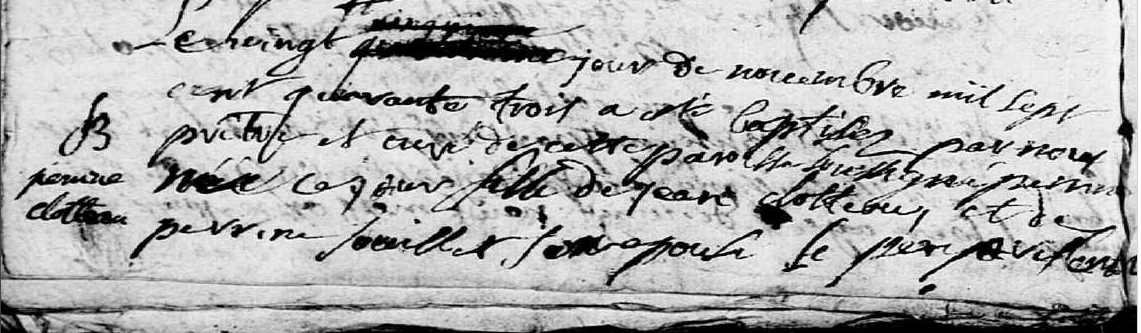 Le vingt jour de novembre mil sept
cent quarante trois a ete baptisee par nous
B
prêtre et curé de cette paroisse soussigné perrine
perrine
née ce jour fille de jean clotteau et de
clotteau
perrine souillet son epouse le père présent